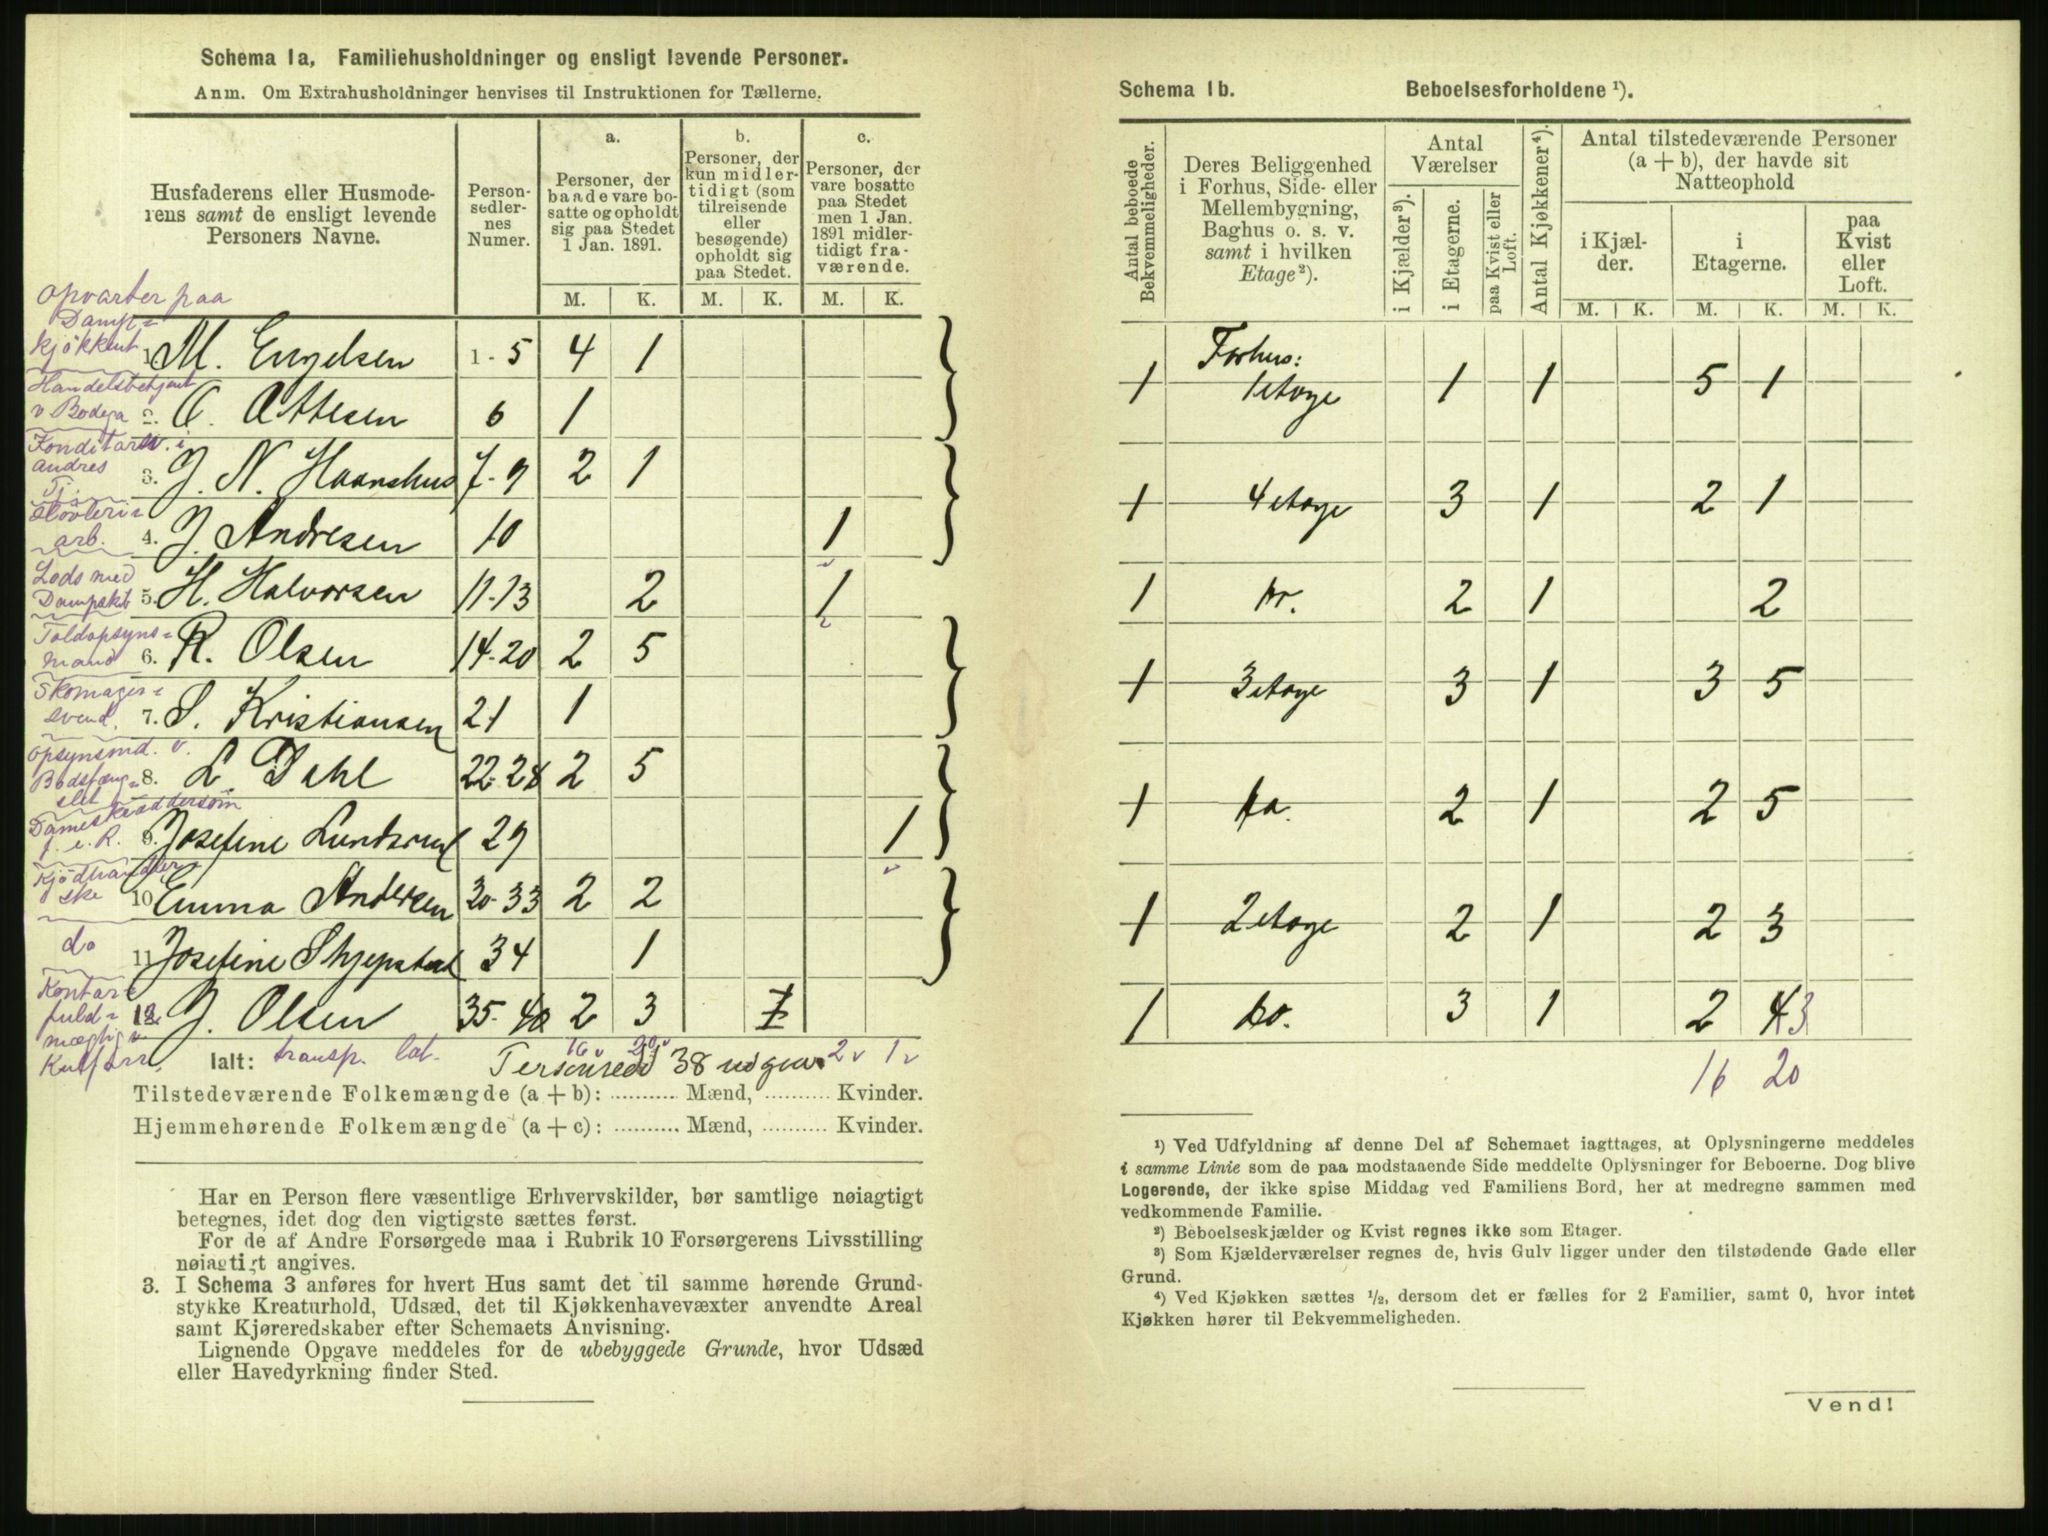 Schema 1a, Familiehusholdninger og ensligt levende Personer.
Anm. Om Extrahusholdninger henvises til Instruktionen for Tællerne.
Husfaderens eller Husmode-
rens samt de ensligt levende
Personers Navne.
Person-
sedler-
nes
Numer.
a.
Personer, der
baade vare bo-
satte og opholdt
sig paa Stedet
1 Jan. 1891.
b.
Personer, der
kun midler-
tidigt (som
tilreisende
eller
besøgende)
opholdt sig
paa Stedet.
c.
Personer, der
vare bosatte
paa Stedet
men 1 Jan.
1891 midler-
tidigt fra-
værende.
M. K. M. K. M. K.
Opvarter paa
Damp=
kjøkkent
1. M. Engelsen 1-5 4 1
Handelsbetjent
v Bodega
2. O. Attesen 6 1
Konditorsv. i
andres
Tj.
3. J. N. Haanshus 7-9 2 1
Støvleri=
arb.
4. J. Andresen 10 1
Lods med
Dampskib
5. H. Halvorsen 11-13 2 1
Toldopsyns=
mand
6. R. Olsen 14-20 2 5
Skomager=
svend.
7. S. Kristiansen 21 1
Opsynsmd. v.
Bodsfæng=
slet
8. L. Dehl 22-28 2 5
Dameskræddersom
f. e. R.
9. Josefine Lundsrud 29 1
Kjødhandler
ske
10 Emma Andersen 30-33 2 2
do
11 Josefine Skjepstad 34 1
Kontor=
fuld=
mægtig v.
12. J. Olsen 35-40 2 3 1
Ialt: transp. lat. 16 v 20 v 2 v 1 v
Personsedl 38 udgaar
Tilstedeværende Folkemængde (a + b): ........... Mænd, ........... Kvinder.
Hjemmehørende Folkemængde (a + c): ........... Mænd, ........... Kvinder.
Har en Person flere væsentlige Erhvervskilder, bør samtlige nøiagtigt
betegnes, idet dog den vigtigste sættes først.
For de af Andre Forsørgede maa i Rubrik 10 Forsørgerens Livsstilling
nøiagtigt angives.
3. I Schema 3 anføres for hvert Hus samt det til samme hørende Grund-
stykke Kreaturhold, Udsæd, det til Kjøkkenhavevæxter anvendte Areal
samt Kjøreredskaber efter Schemaets Anvisning.
Lignende Opgave meddeles for de ubebyggede Grunde, hvor Udsæd
eller Havedyrkning finder Sted.
Schema 1b. Beboelsesforholdene ¹).
Antal beboede
Bekvemmeligheder.
Deres Beliggenhed
i Forhus, Side- eller
Mellembygning,
Baghus o. s. v.
samt i hvilken
Etage ²).
Antal
Værelser
i Kjælder ³).
i Etagerne.
paa Kvist eller
Loft.
Antal Kjøkkener ⁴).
Antal tilstedeværende Personer
(a + b), der havde sit
Natteophold
i Kjæl-
der.
i
Etagerne.
paa
Kvist
eller
Loft.
M. K. M. K. M. K.
Forhus:
1 1 etage 1 1 5 1
1 4 etage 3 1 2 1
1 do. 2 1 2
1 3 etage 3 1 3 5
1 do. 2 1 2 5
1 2 etage 2 1 2 3
1 do. 3 1 2 4 3
16 20
¹) Ved Udfyldning af denne Del af Schemaet iagttages, at Oplysningerne meddeles
i samme Linie som de paa modstaaende Side meddelte Oplysninger for Beboerne. Dog blive
Logerende, der ikke spise Middag ved Familiens Bord, her at medregne sammen med
vedkommende Familie.
²) Beboelseskjælder og Kvist regnes ikke som Etager.
³) Som Kjælderværelser regnes de, hvis Gulv ligger under den tilstødende Gade eller
Grund.
⁴) Ved Kjøkken sættes ¹/₂, dersom det er fælles for 2 Familier, samt 0, hvor intet
Kjøkken hører til Bekvemmeligheden.
Vend!